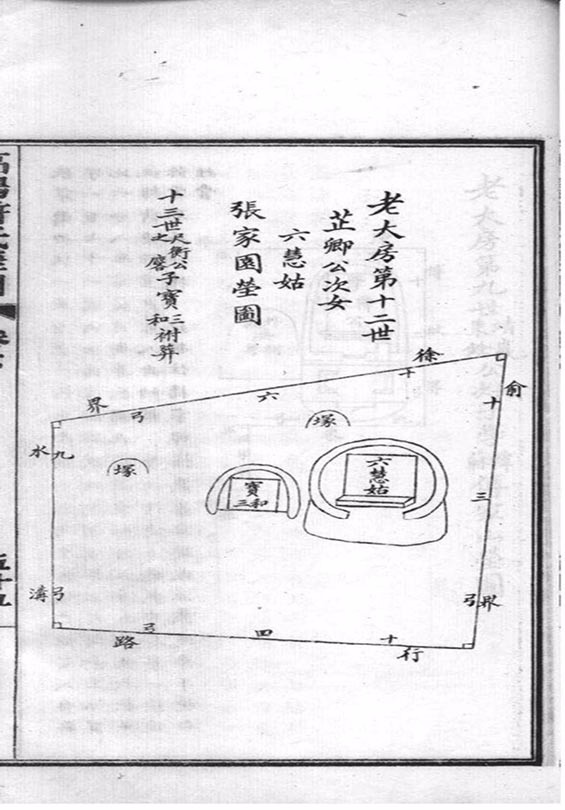 老大房第十二世
芷卿公次女
六慧姑
張家園塋圖
十三世尺衡公之子寶三和祔葬
俞界
十三弓
徐界
十六弓
行路
十四弓
水溝
九弓
塚
六慧姑
寶三和
塚